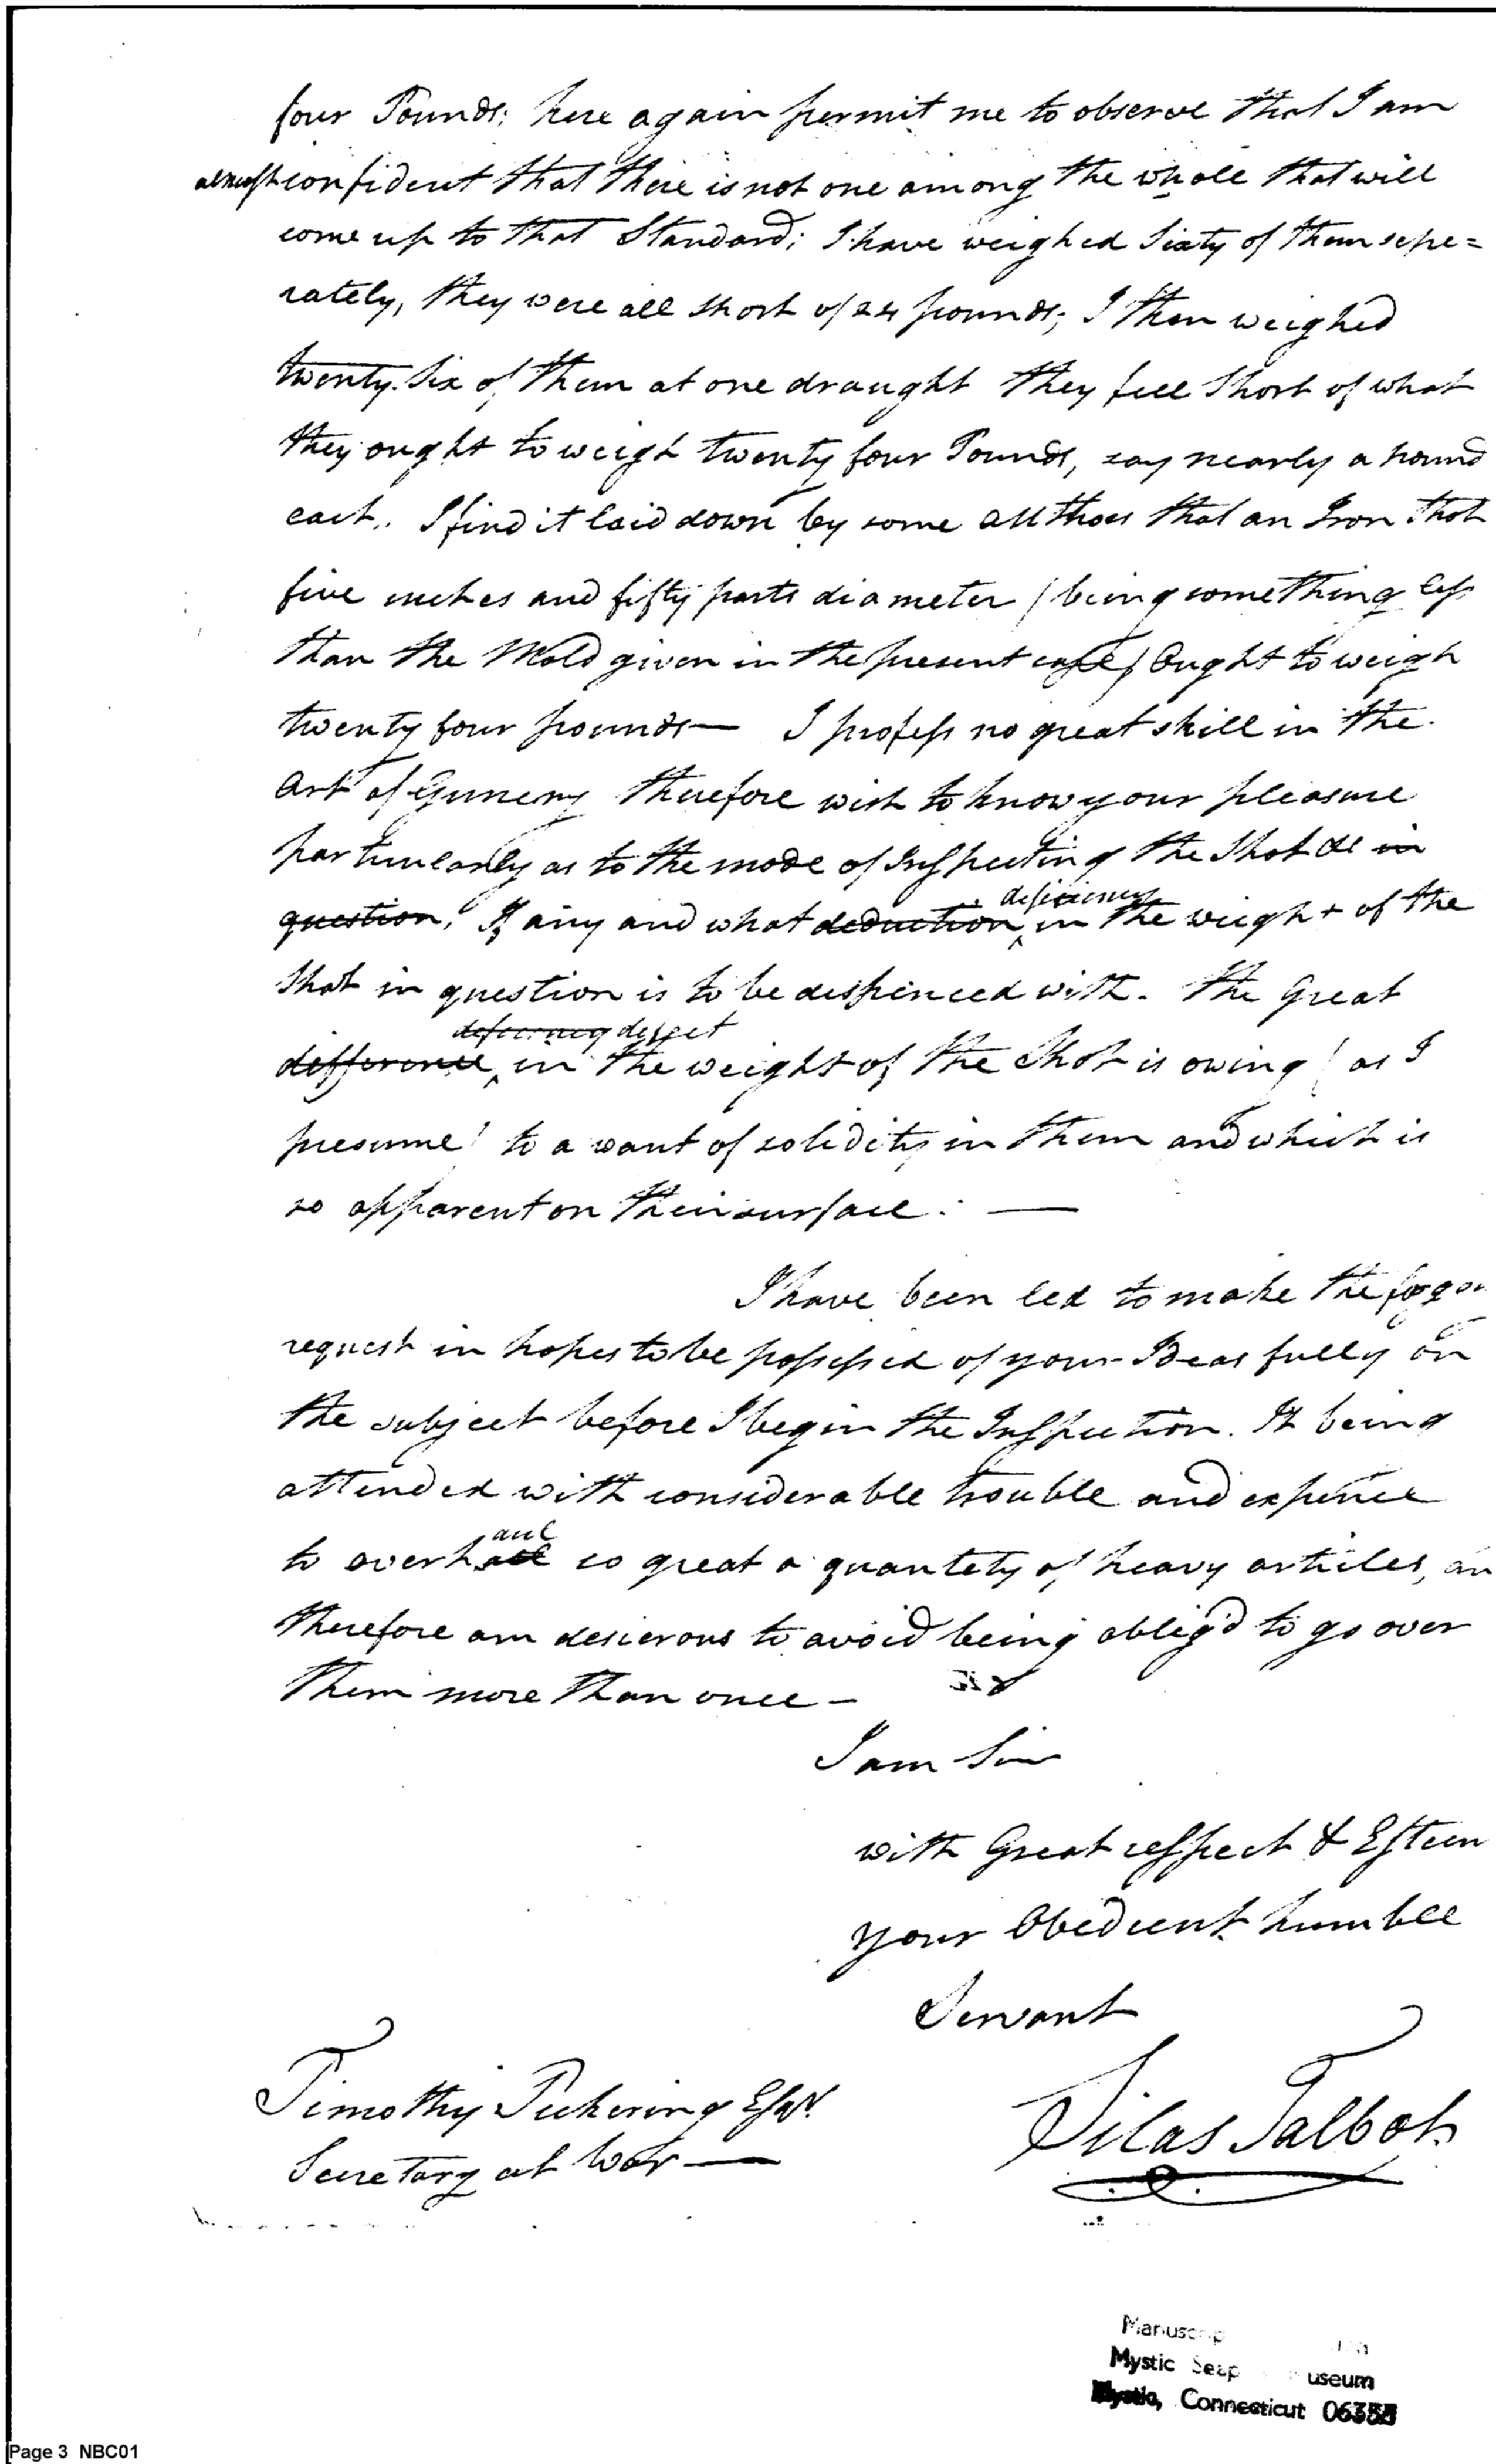 four Pounds; here again permit me to observe that I am
almost confident that there is not one among the whole that will
come up to that Standard; I have weighed Sixty of them sepe=
rately, they were all short of 24 pounds; I then weighed
twenty Six of them at one draught they fell Short of what
they ought to weigh twenty four Pounds, say nearly a pound
each. I find it laid down by some authors that an Iron Shot
five inches and fifty parts diameter (being something less
than the Mold given in the present case) Ought to weigh
twenty four pounds— I profess no great skill in the
Art of Gunery therefore wish to know your pleasure
particularly as to the mode of Inspecting the Shot &c in
deficiency
question, If any and what deduction in the weight of the
Shot in question is to be dispenced with. The Great
deficiency defect
difference in the weight of the Shot is owing (as I
presume) to a want of solidity in them and which is
so apparent on their surface. —
I have been led to make the
request in hopes to be possessed of your Ideas fully on
the subject before I begin the Inspection. It being
attended with considerable trouble and expence
aul
to overhall so great a quantety of heavy articles, an
therefore am desierous to avoid being oblig'd to go over
them more than once –
I am Sir
with Great respect & Esteem
your Obedient humble
Servant
Timothy Pickering Esqr.
Secretary at War —
Silas Talbot
Manuscrip
Mystic Seap useum
Mystic, Connecticut 06355
Page 3 NBC01